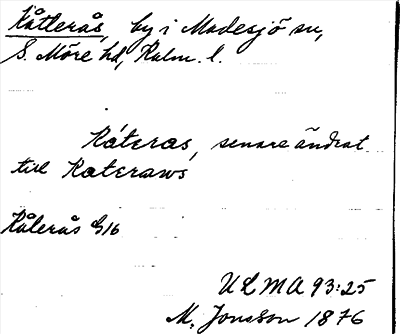 Kåtlerås, by i Madesjö sn,
S. Möre hd, Kalm. l.
Ráteras, senare ändrat
till Rateraws
Kålerås G16
ULMA 93:25
M. Jonsson 1876